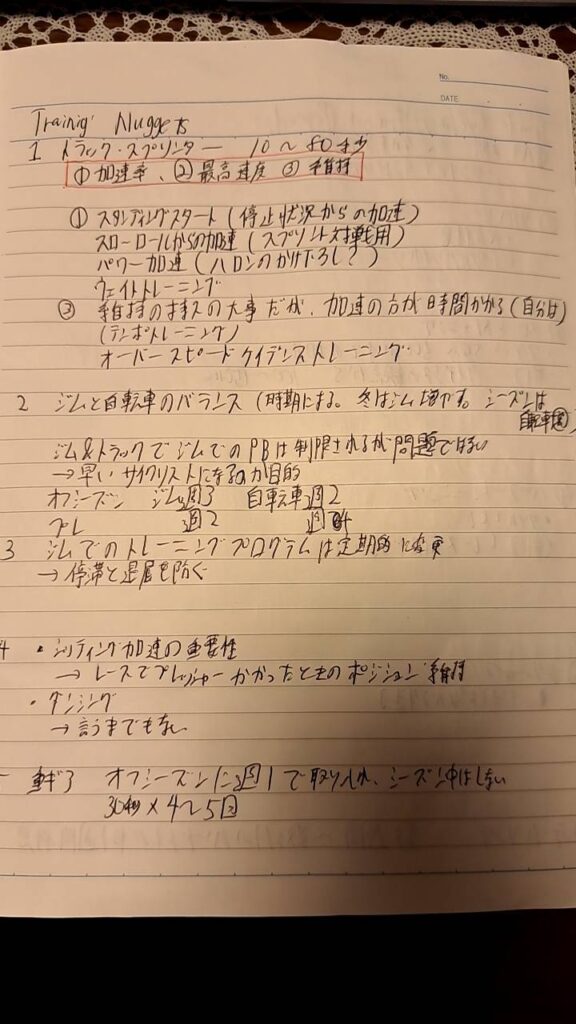 No.
DATE
Trainig Nuggets
1 トラック・スプリンター 10〜80秒
① 加速率、② 最高速度 ③ 維持
① スタンディングスタート (停止状況からの加速)
スローロールからの加速 (スプリント対戦用)
パワー加速 (ハロンのかけ下ろし?)
ウェイトトレーニング
③ 維持のオススメ大事だが、加速の方が時間かかる (自分は)
(テンポトレーニング)
オーバースピードケイデンストレーニング
2 ジムと自転車のバランス (時期による。冬はジム増やす。シーズンは
自転車)
ジム&トラックでジムでのPBは制限されるが問題ではない
→ 早いサイクリストになるのが目的
オフシーズン ジム週3 自転車週2
プレ 週2 週4
3 ジムでのトレーニングプログラムは定期的に変更
→ 停滞と退屈を防ぐ
4 ・シッティング加速の重要性
→ レースでプレッシャーかかったときのポジション維持
・ダンシング
→ 言うまでもない
重ギア オフシーズンに週1で取り入れ、シーズン中はしない
30秒×4〜5回